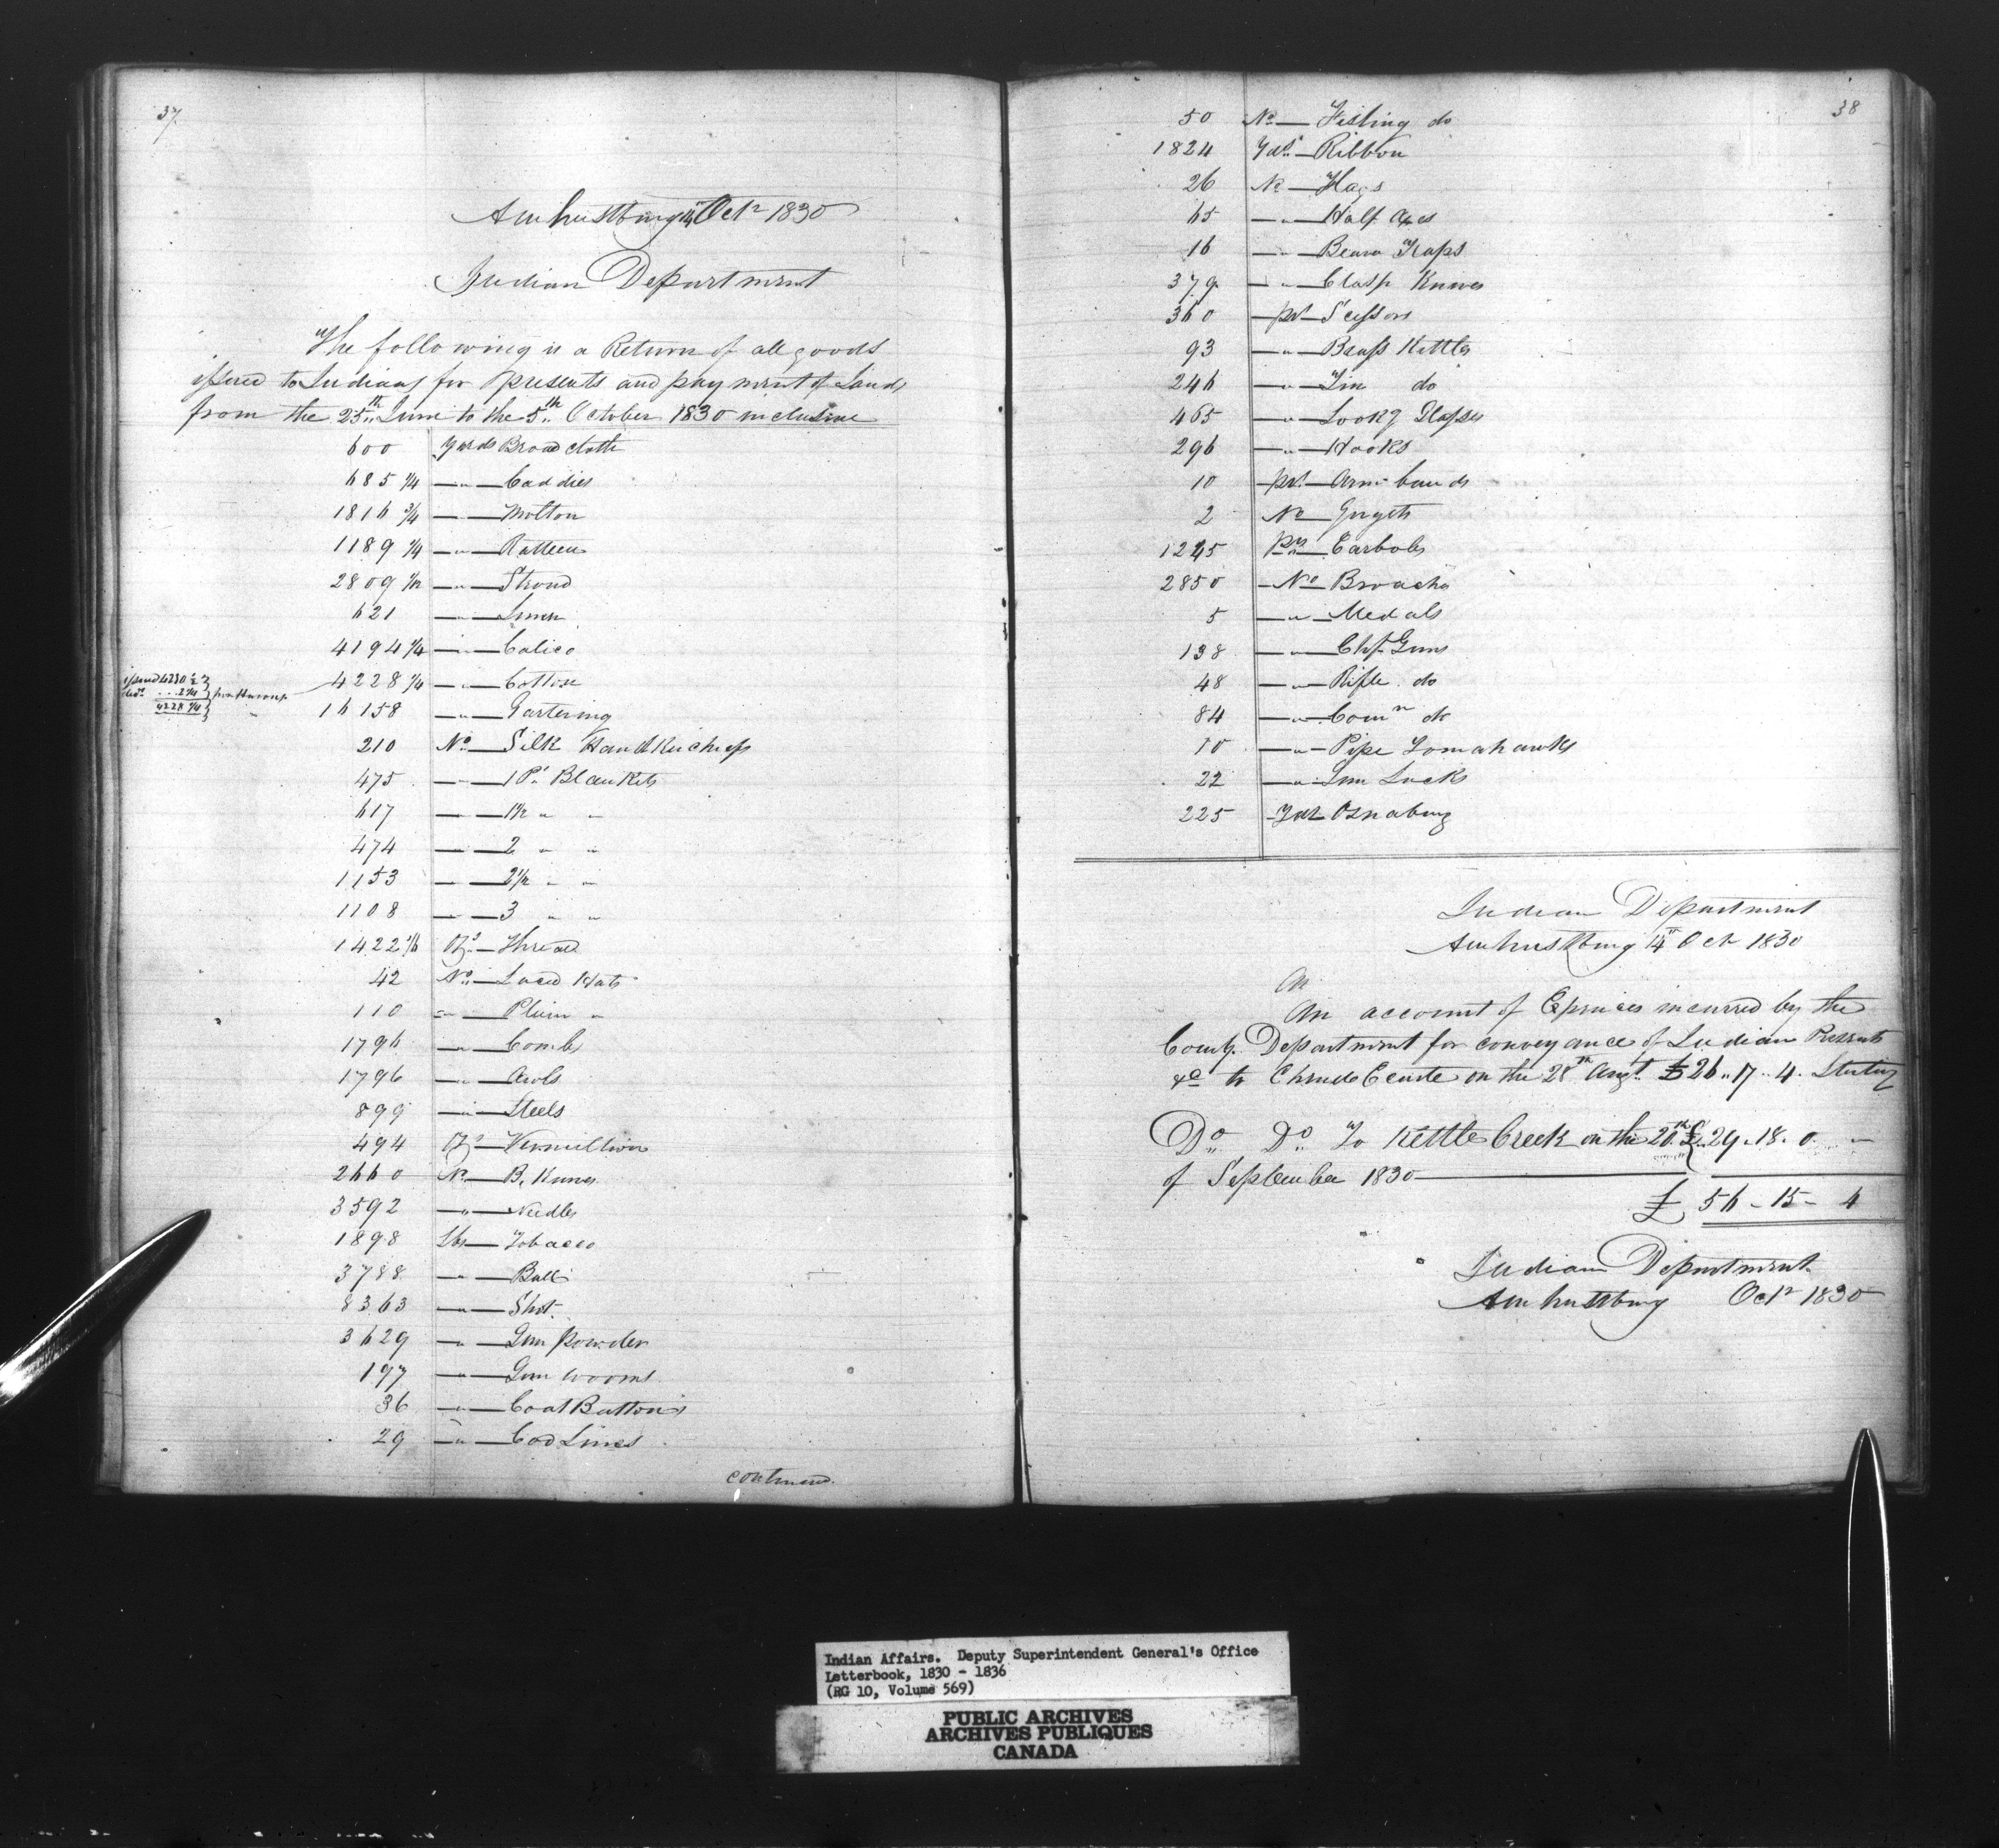 37
Amherstburg 14 Octr 1830
Indian Department
The following is a Return of all goods
issued to Indians for presents and payment of Lands
from the 25th June to the 5th October 1830 inclusive
600 yards Broad cloth
685 1/4 — " — Caddies
1816 3/4 — " — Molton
1189 1/4 — " — Ratteen
2809 1/2 — " — Stroud
621 — " — Linen
4194 1/4 — " — Calico
issued 4230 1/2
ded. ... 2 1/4
4228 1/4
4228 1/4 — " — Cotton
16158 — " — Gartering
210 No — Silk Handkerchiefs
475 — " — 1 Pt Blankets
617 — " — 1 1/2 " "
474 — " — 2 " "
1153 — " — 2 1/2 " "
1108 — " — 3 " "
1422 Ozs — Thread
42 No — Laced Hats
110 — " — Plain "
1796 — " — Combs
1796 — " — Awls
899 — " — Steels
494 Ozs — Vermillion
2660 No — B. Knives
3592 — " — Needles
1898 lbs — Tobacco
3788 — " — Ball
8363 — " — Shot
3629 — " — Gun powder
197 — " — Gun worms
36 — " — Coat Buttons
29 — " — Cod Lines
continued.
38
50 No — Fishing do
1824 Yds — Ribbon
26 No — Flags
65 — " — Half Axes
16 — " — Beaver Traps
379 — " — Clasp Knives
360 — prs — Scissors
93 — " — Brass Kettles
246 — " — Tin do
465 — " — Lookg Glasses
296 — " — Hooks
10 prs — Arm bands
2 No — Gorgets
1245 prs — Earbobs
2850 — No Broachs
5 — " — Medals
138 — " — Chfs Guns
48 — " — Rifle do
84 — " — Comn do
10 — " — Pipe Tomahawks
22 — " — Gun Locks
225 Yds Osnaburg
Indian Department
Amherstburg 14th Oct 1830
An
An account of Expences incurred by the
Comy. Department for conveyance of Indian Presents
&c to Chenale Ecarte on the 28th Augt. £26 " 17 " 4. Sterling
Do Do To Kettle Creek on the 20th £ 29 . 18 . 0
of September 1830
£ 56 - 15 - 4
Indian Department
Amherstburg Octr 1830
Indian Affairs. Deputy Superintendent General's Office
Letterbook, 1830 - 1836
(RG 10, Volume 569)
PUBLIC ARCHIVES
ARCHIVES PUBLIQUES
CANADA